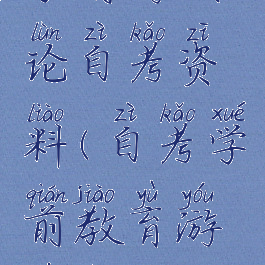 lùn zì kǎo zī
论自考资
liào zì kǎo xué
料(自考学
qián jiào yù yóu
前教育游